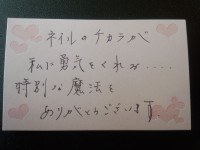 ネイルのチカラが
私に勇気をくれみ....
特別な魔法を
ありがとうございます。